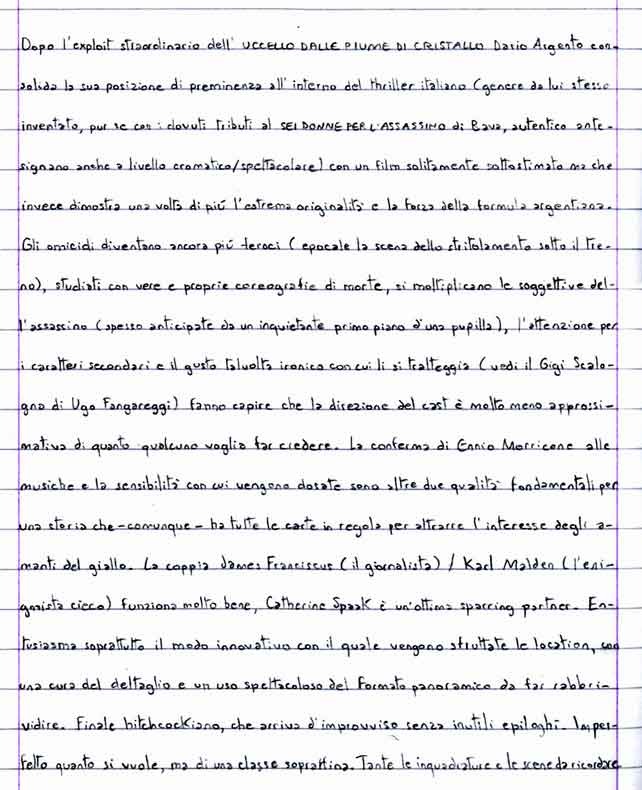 Dopo l'exploit straordinario dell' UCCELLO DALLE PIUME DI CRISTALLO Dario Argento con-
solida la sua posizione di preminenza all'interno del thriller italiano (genere da lui stesso
inventato, pur se con i dovuti tributi al SEI DONNE PER L'ASSASSINO di Bava, autentico ante-
signano anche a livello cromatico/spettacolare) con un film solitamente sottostimato ma che
invece dimostra una volta di più l'estrema originalità e la forza della formula argentiana.
Gli omicidi diventano ancora più feroci (epocale la scena dello stritolamento sotto il tre-
no), studiati con vere e proprie coreografie di morte, si moltiplicano le soggettive del-
l'assassino (spesso anticipate da un inquietante primo piano d'una pupilla), l'attenzione per
i caratteri secondari e il gusto talvolta ironico con cui li si tratteggia (vedi il Gigi Scalo-
gna di Ugo Fangareggi) fanno capire che la direzione del cast è molto meno approssi-
mativa di quanto qualcuno voglia far credere. La conferma di Ennio Morricone alle
musiche e la sensibilità con cui vengono dosate sono altre due qualità fondamentali per
una storia che - comunque - ha tutte le carte in regola per attrarre l'interesse degli a-
manti del giallo. La coppia James Franciscus (il giornalista) / Karl Malden (l'eni-
gmista cieco) funziona molto bene, Catherine Spaak è un'ottima sparring partner. En-
tusiasma soprattutto il modo innovativo con il quale vengono sfruttate le location, con
una cura del dettaglio e un uso spettacoloso del formato panoramico da far rabbri-
vidire. Finale hitchcockiano, che arriva d'improvviso senza inutili epiloghi. Imper-
fetto quanto si vuole, ma di una classe sopraffina. Tante le inquadrature e le scene da ricordare